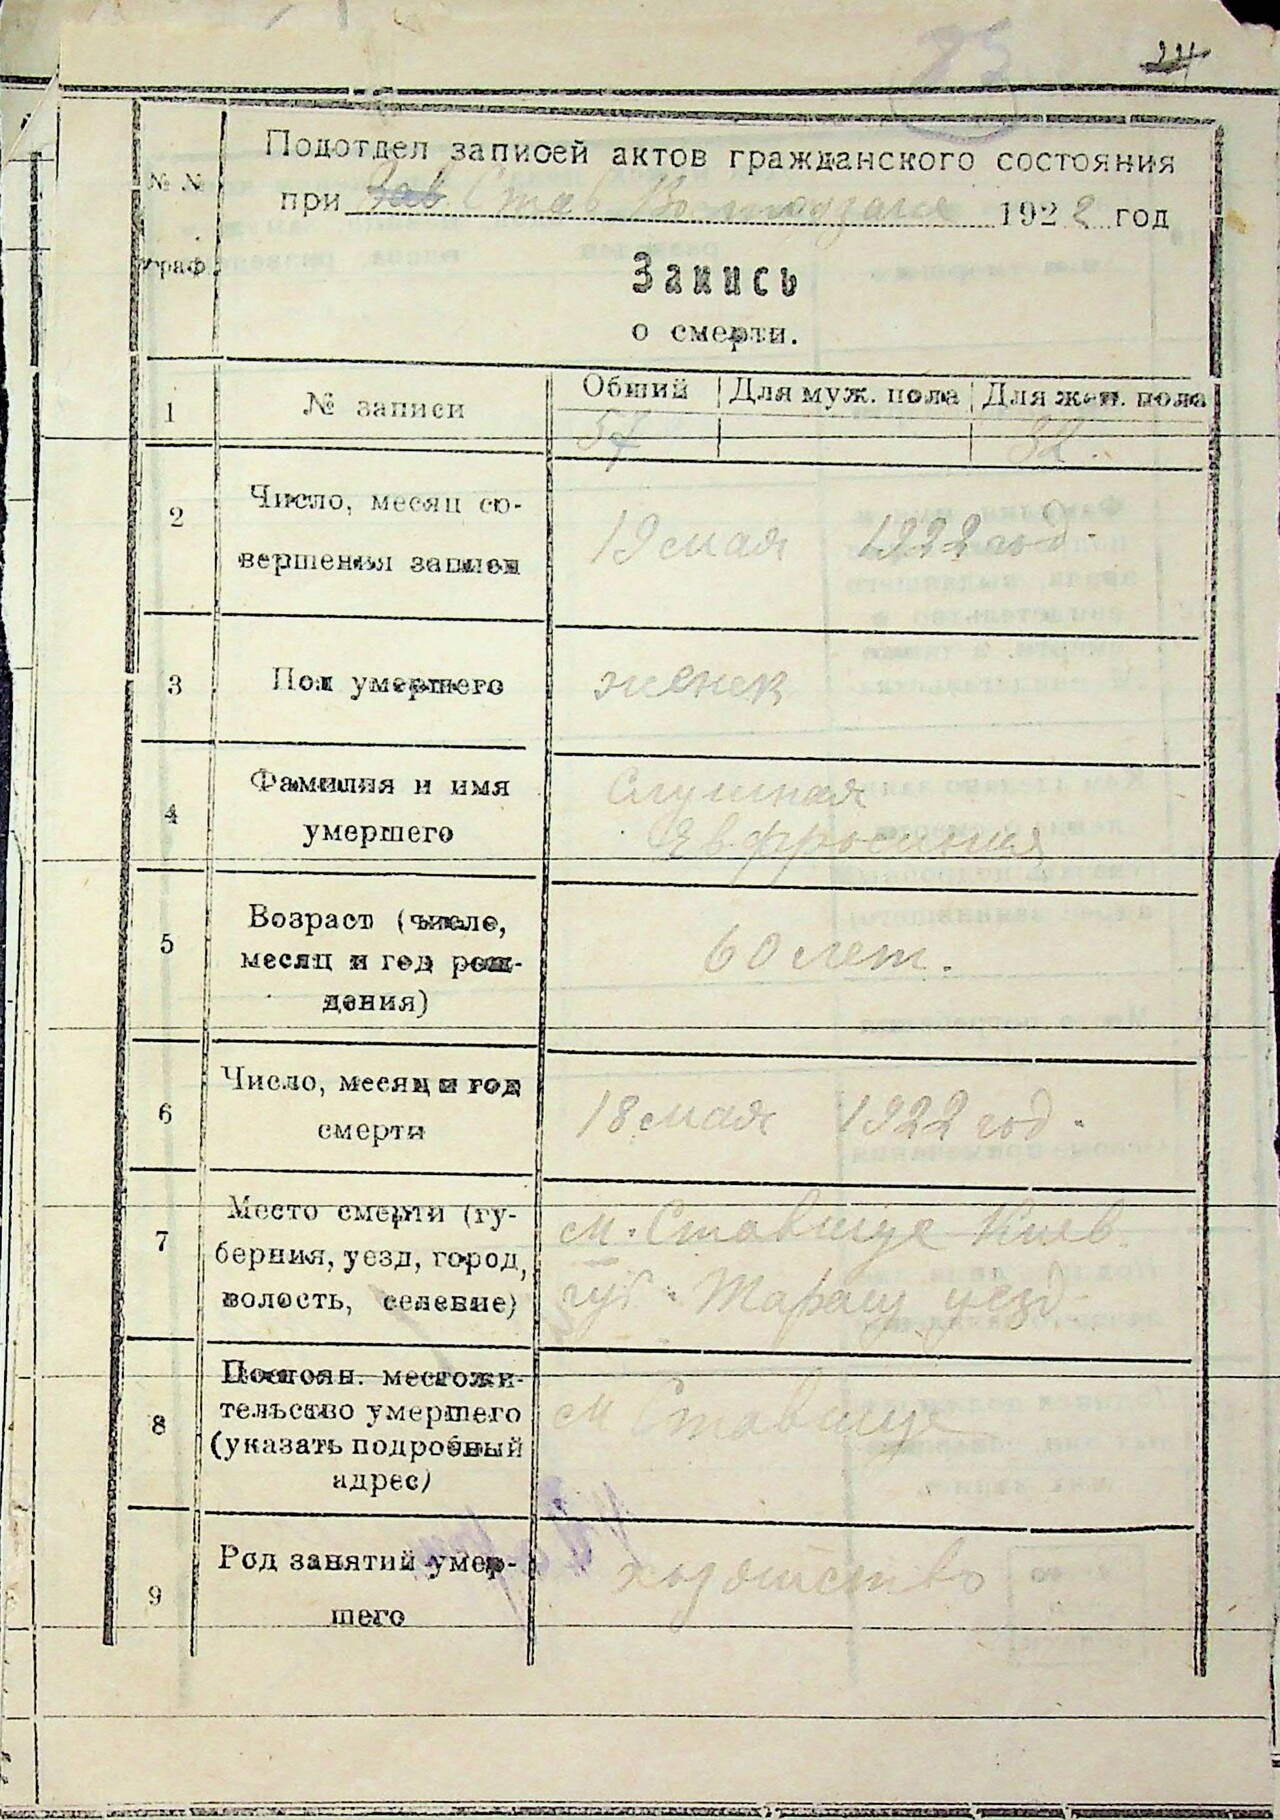 24
25
Подотдел записей актов гражданского состояния
при Став 1922 год
№ №
граф.
Запись
о смерти.
1 № записи Общий Для муж. пола Для жен. пола
57 32
2 Число, месяц со-
вершения записи
19 мая 1922 год.
3 Пол умершего женск
4 Фамилия и имя
умершего
Слушная
Евфросиния
5 Возраст (число,
месяц и год рож-
дения)
60 лет.
6 Число, месяц и год
смерти
18 мая 1922 год.
7 Место смерти (гу-
берния, уезд, город,
волость, селение)
м. Ставище Киев.
губ. Таращ уезд
8 Постоян. местожи-
тельство умершего
(указать подробный
адрес)
м Ставище
9 Род занятий умер-
шего
хозяйство